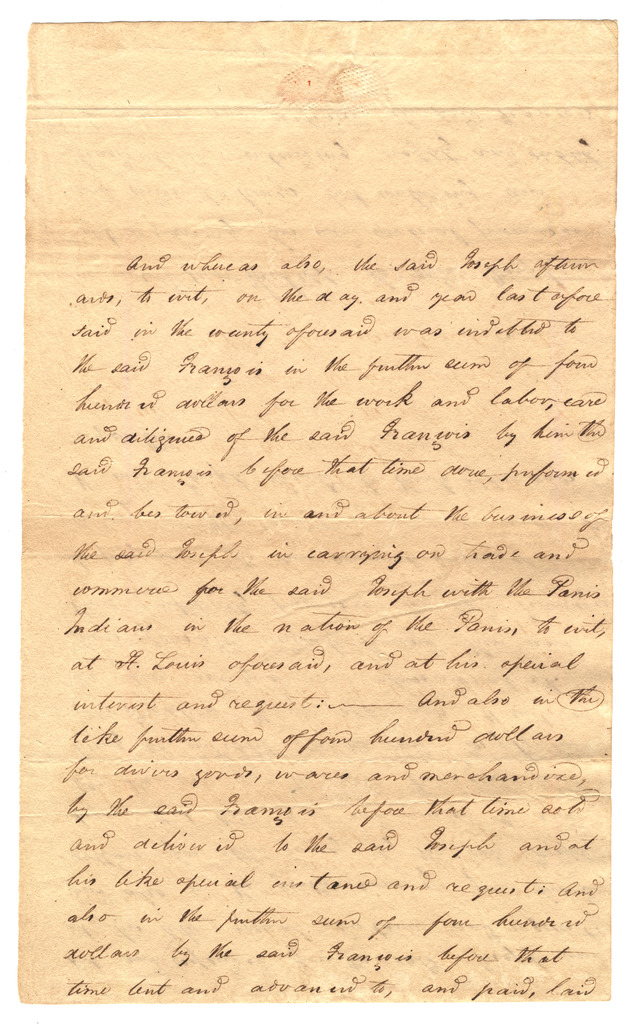 And whereas also, the said Joseph afterw
ards, to wit, on the day and year last afore
said in the county aforesaid was indebted to
the said François in the further sum of four
hundred dollars for the work and labor, care
and diligence of the said François by him the
said François before that time done, performed
and bestowed, in and about the business of
the said Joseph in carrying on trade and
commerce for the said Joseph with the Panis
Indians in the nation of the Panis, to wit,
at St. Louis aforesaid, and at his special
interest and request: And also in the
like further sum of four hundred dollars
for divers goods, wares and merchandize,
by the said François before that time sold
and delivered to the said Joseph and at
his like special instance and request: And
also in the further sum of four hundred
dollars by the said François before that
time lent and advanced to, and paid, laid